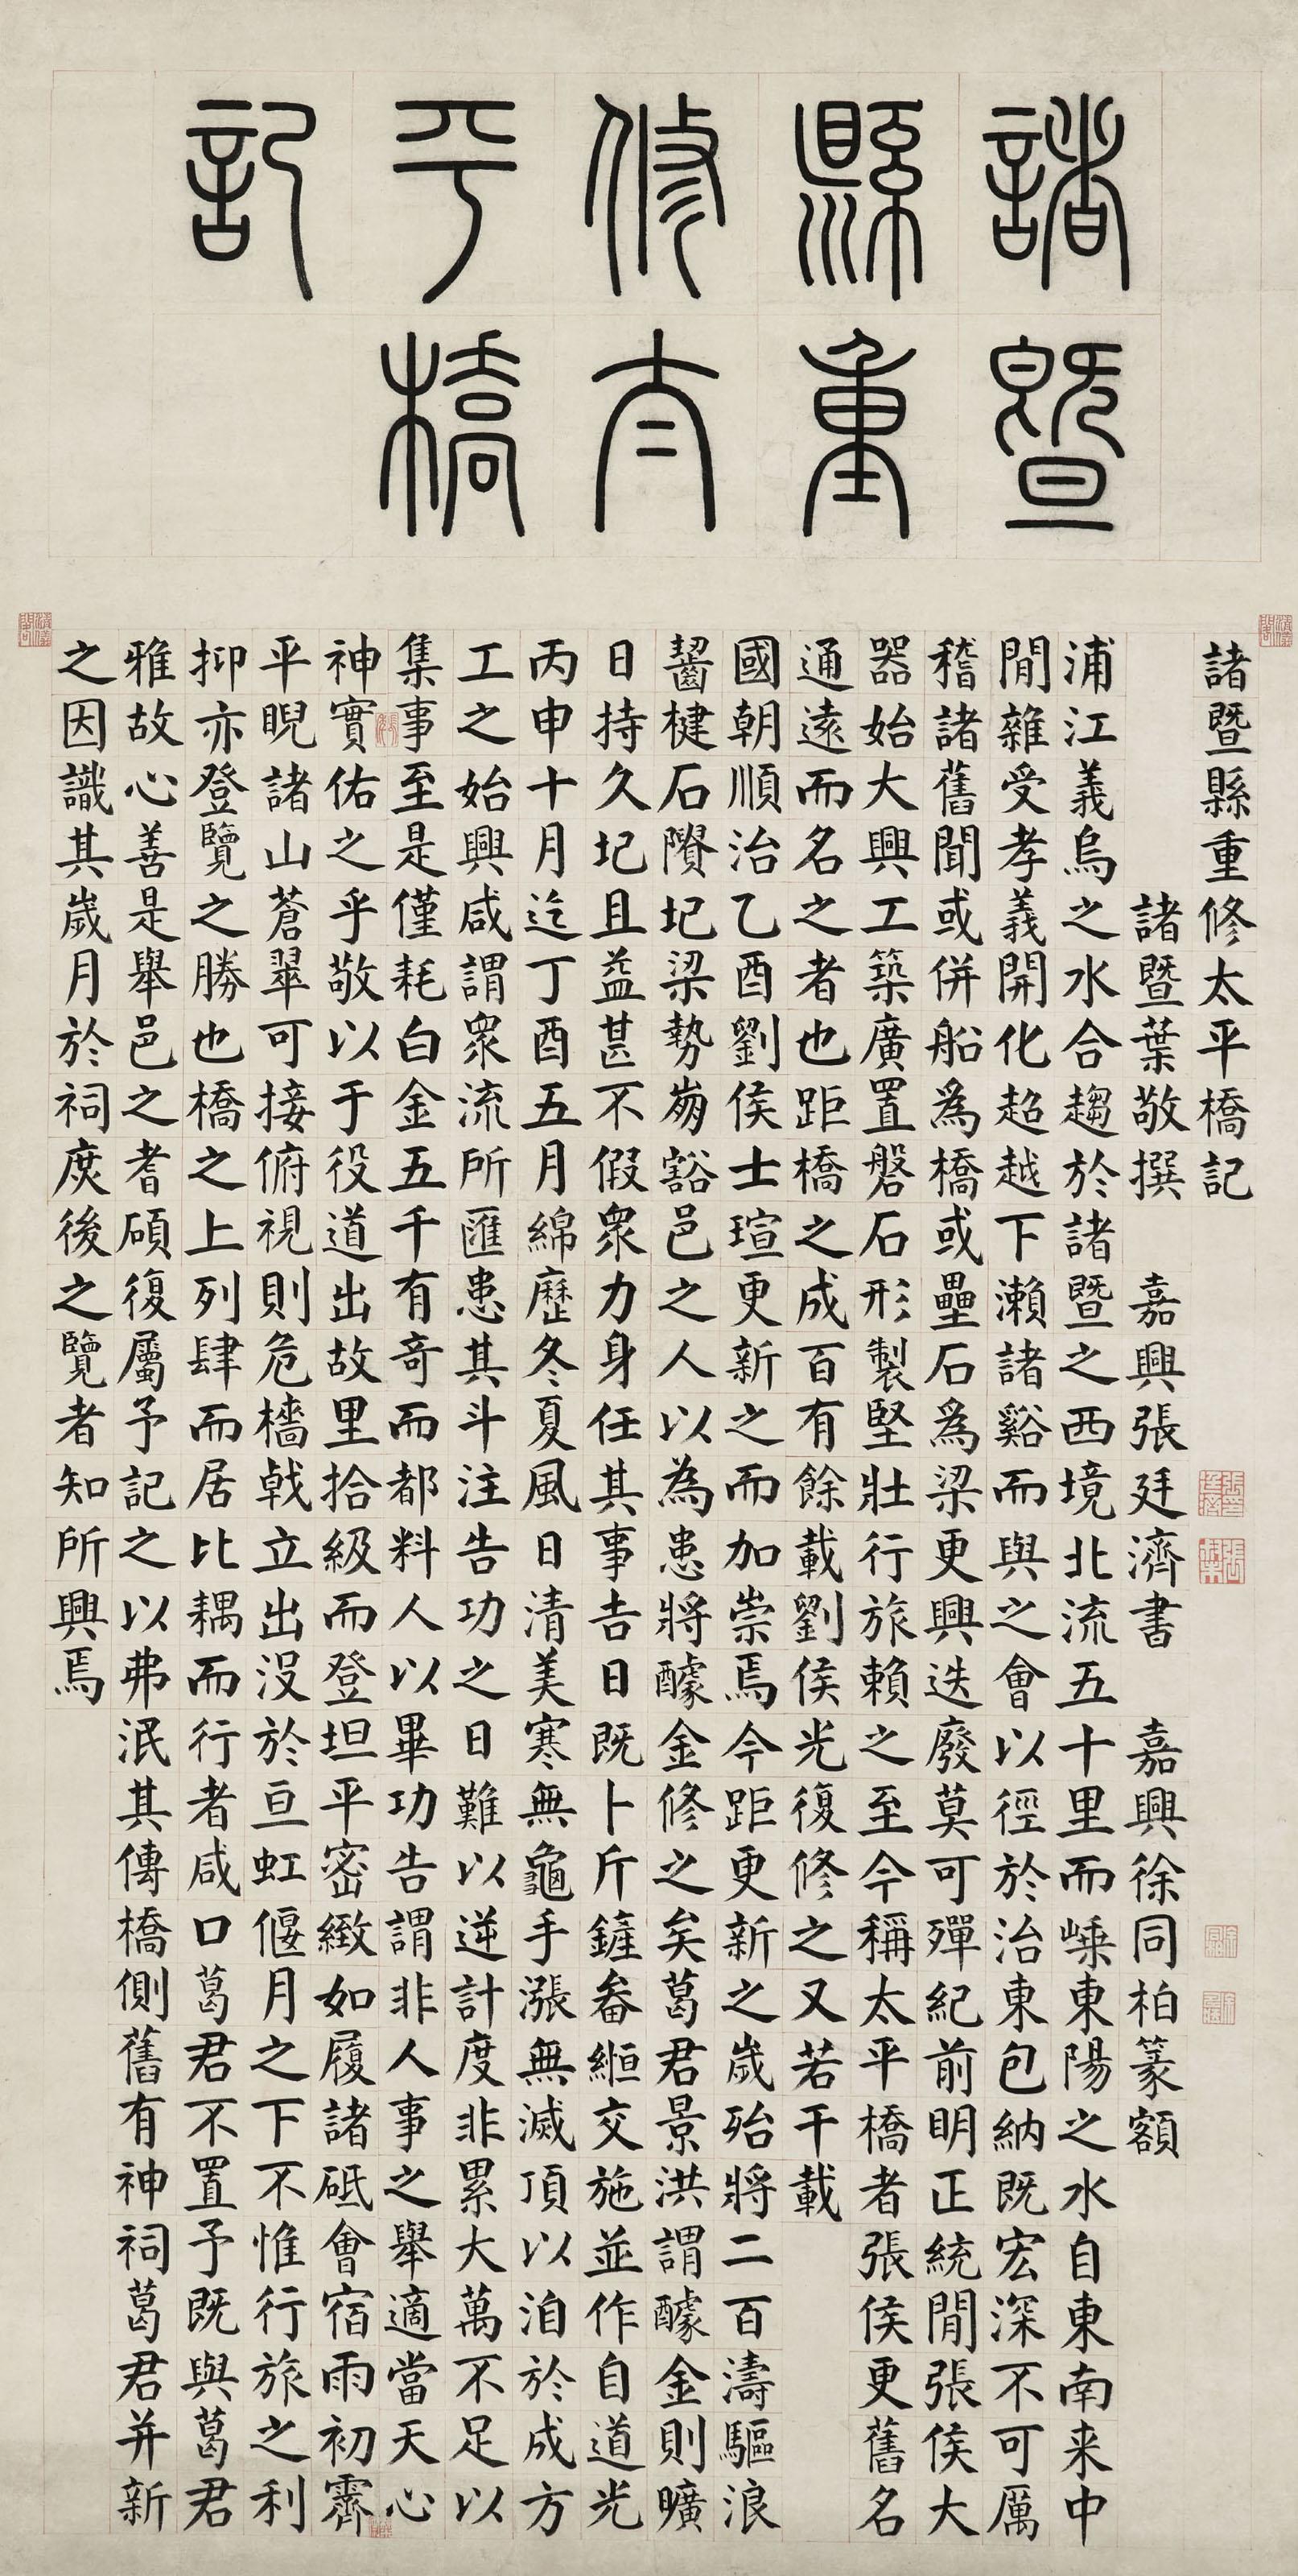 諸暨
縣重
修太
平橋
記
諸暨縣重修太平橋記
諸暨葉敬撰 嘉興張廷濟書 嘉興徐同柏篆額
浦江義烏之水合趨於諸暨之西境北流五十里而嵊東陽之水自東南来中
閒雜受孝義開化超越下瀨諸谿而與之會以徑於治東包納既宏深不可厲
稽諸舊聞或併船為橋或壘石為梁更興迭廢莫可殫紀前明正統閒張侯大
器始大興工築廣置磐石形製堅壯行旅賴之至今稱太平橋者張侯更舊名
通遠而名之者也距橋之成百有餘載劉侯光復修之又若干載
國朝順治乙酉劉侯士瑄更新之而加崇焉今距更新之歲殆將二百濤驅浪
齧楗石隤圮梁勢崩豁邑之人以為患將醵金修之矣葛君景洪謂醵金則曠
日持久圮且益甚不假衆力身任其事吉日既卜斤鏟畚緪交施並作自道光
丙申十月迄丁酉五月綿歷冬夏風日清美寒無龜手漲無滅頂以洎於成方
工之始興咸謂衆流所匯患其斗注告功之日難以逆計度非累大萬不足以
集事至是僅耗白金五千有奇而都料人以畢功告謂非人事之舉適當天心
神實佑之乎敬以于役道出故里拾級而登坦平密緻如履諸砥會宿雨初霽
平睨諸山蒼翠可接俯視則危檣戟立出没於亘虹偃月之下不惟行旅之利
抑亦登覽之勝也橋之上列肆而居比耦而行者咸口葛君不置予既與葛君
雅故心善是舉邑之耆碩復屬予記之以弗泯其傳橋側舊有神祠葛君并新
之因識其歲月於祠庶後之覽者知所興焉